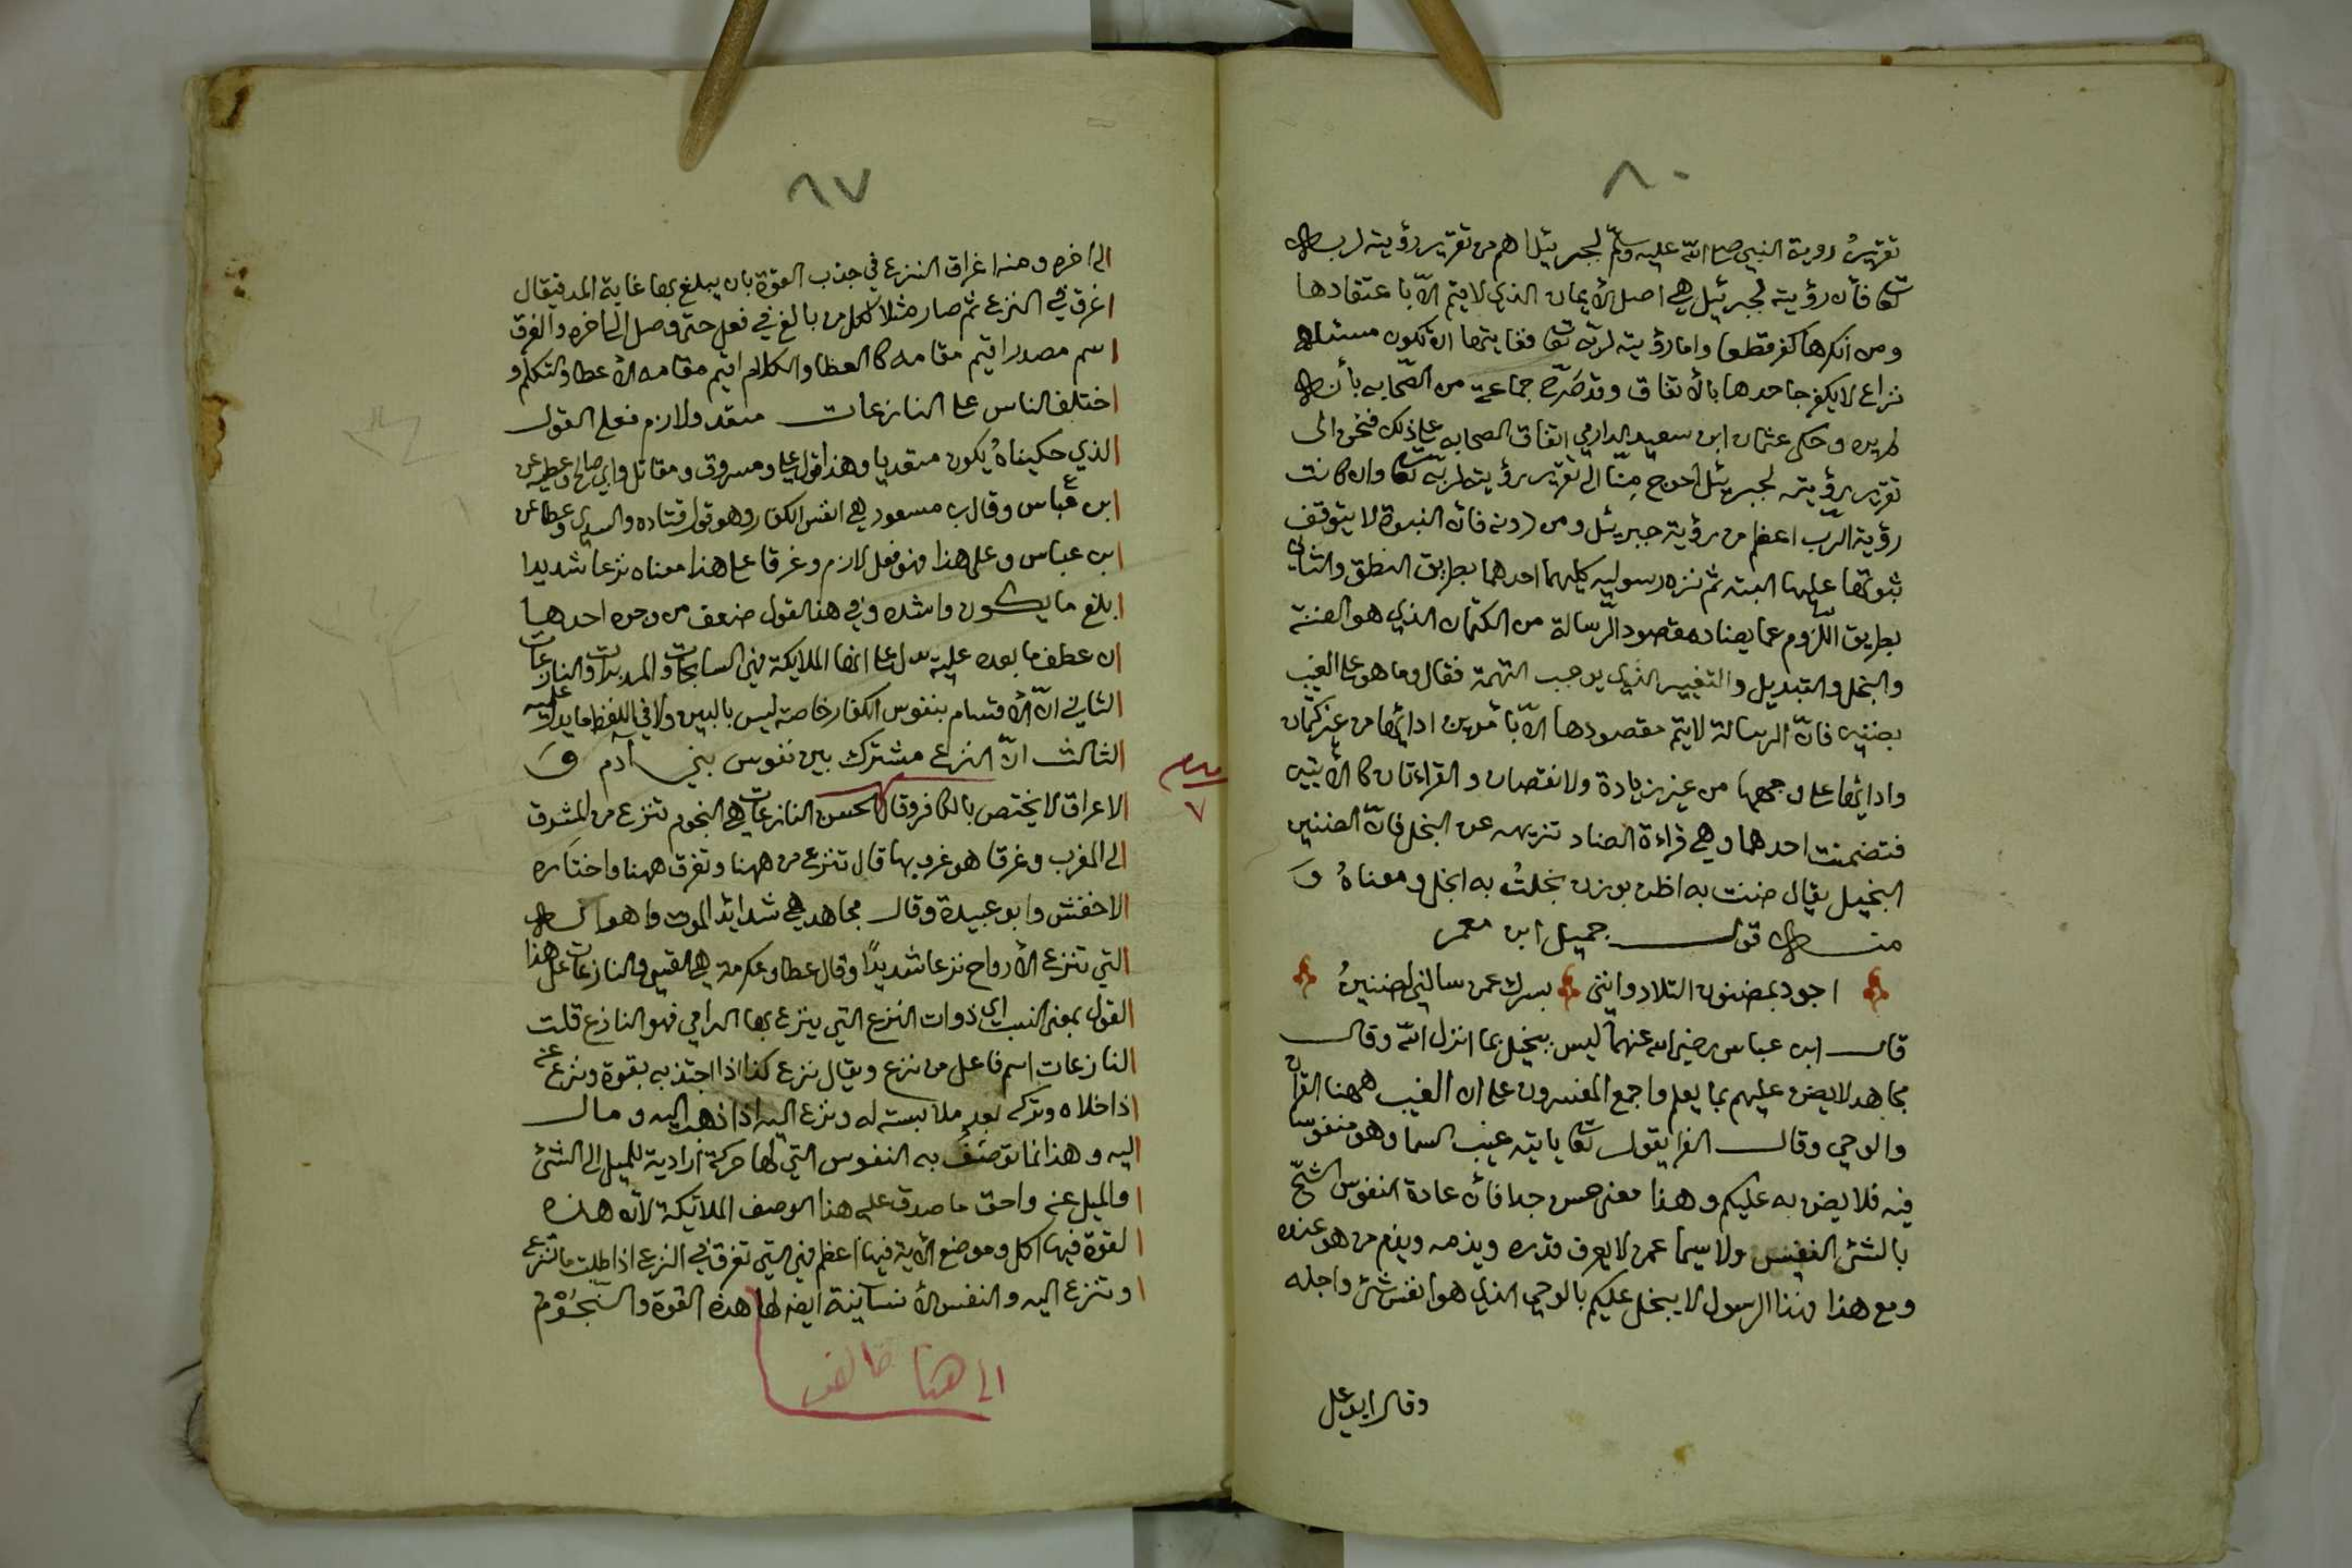 ٨٠
تقرير روية النبي صلى الله عليه وسلم لجبريئل اهم من تقرير رؤيته لربه
تعا فأن رؤيته لجبرئيل هي اصل الأيمان الذي لا يتم الاّ باعتقادها
ومن انكرها كفر قطعا واما رؤيته لربه تعا فغايتها ان تكون مسئله
نزاع لا يكفر جاحدها بالأتفاق وقد صَرّح جماعة من الصّحابه بأنه
لم يره وحكى عثمان ابن سعيد الدارمي اتفاق الصحابه على ذلك فنحن الى
تقرير رؤيته لجبريئل احوج مِنّا الى تقرير رؤيته لربّه تعا وان كانت
رؤية الرّب اعظم من رؤية جبريئل ومن دونه فأن النبوة لا يتوقف
ثبوتها عليها البته ثم نزه رسوليه كليهما احدهما بطريق النطق والثاني
بطريق اللزوم عما يضاد مقصود الرّسالة من الكتمان الذي هو الضنة
والبخل والتبديل والتغيير الذي يوجب التهمة فقال وما هو على الغيب
بضنين فانّ الرسالة لا يتم مقصودها الاّ بأمرين ادائها من غير كتمان
وادائها على وجهها من غير زيادة ولا نقصان والقراءتان كالأيتين
فتضمنت احدهما وهي قراءة الضاد تنزيهه عن البخل فانّ الضنين
البخيل يقال ضننت به اظن بوزن بخلتُ به ابخل ومعناهُ وَ
منه قول جميل ابن معمر
اجود بمضنون التلاد وانني بسرك عمن سالني لضنينُ
قال ابن عباس رضي الله عنهما ليس ببخيل بما انزل الله وقال
مجاهد لا يضن عليهم بما يعلم واجمع المفسرون على ان الغيب ههنا القرآن
والوحي وقال الفرا يقول تعا يأتيه غيب السما وهو منفوس
فيه فلا يضن به عليكم وهذا معنى حسن جدا فأن عادة النفوس الشّح
بالشئ النفيس ولا سيما عمن لا يعرف قدره ويذمه ويذم من هو عنده
ومع هذا فهذا الرسول لا يبخل عليكم بالوحي الذي هو انفس شئ واجله
وقال ابو على
٦٧
الى اخره ومنه اغراق النزع في جذب القوة بان يبلغ بها غاية المد فيقال
اغرق في النزع ثم صار مثلا لكل من بالغ في فعل حتى وصل الى اخره والغرق
اسم مصدر اقيم مقامه كالعطا والكلام اقيم مقامه الأعطا والتكلم و
اختلف الناس على النازعات متعد ولازم فعلى القول
الذي حكيناهُ يكون متعديا وهذا قول على ومسروق ومقاتل وابي صالح وعطيه عن
ابن عباس وقال ب مسعود هي انفس الكفار وهو قول قتاده والسدي وعطا عن
ابن عباس وعلى هذا فهو فعل لازم وغرقا على هذا معناه نزعا شديدا
ابلغ ما يكون واشده وفي هذا القول ضعف من وجوه احدها
ان عطف ما بعده عليه يدل على انها الملايكة فهي السابحات والمدبرات والنازعات
الثاني انّ الأقسام بنفوس الكفار خاصة ليس بالبين ولا في اللفظ ما يدل عليه
الثالث انّ النزع مشترك بين نفوس بني آدم وَ
الاغراق لا يختص بالكافر وقال الحسن النازعات هي النجوم تنزع من المشرق
الى المغرب وغرقا هو غروبها قال تنزع من ههنا وتغرق ههنا واختاره
الاخفش وابو عبيدة وقال مجاهد هي شدايد الموت واهواله
التي تنزع الأرواح نزعا شديداً وقال عطا وعكرمة هي القسي والنازعات على هذا
القول بمعنى النسب اي ذوات النزع التي ينزع بها الرامي فهو النازع قلت
النازعات اسم فاعل من نزع ويقال نزع كذا اذا اجتذبه بقوة ونزع عنه
اذا خلاه وتركه بعد ملابسته له ونزع اليه اذا ذهب اليه ومال
اليه وهذا انما توصَف به النفوس التي لها حركة أرادية للميل الى الشئ
والميل عنه واحق ما صدق عليه هذا الوصف الملائكة لأن هذه
القوة فيها اكمل وموضع الأية فيها اعظم فهي التي تغرق في النزع اذا طلبت ما تنزعه
وتنزع اليه والنفس الأنسانية ايضا لها هذه القوة والنجُوْم
الى هنا
٧